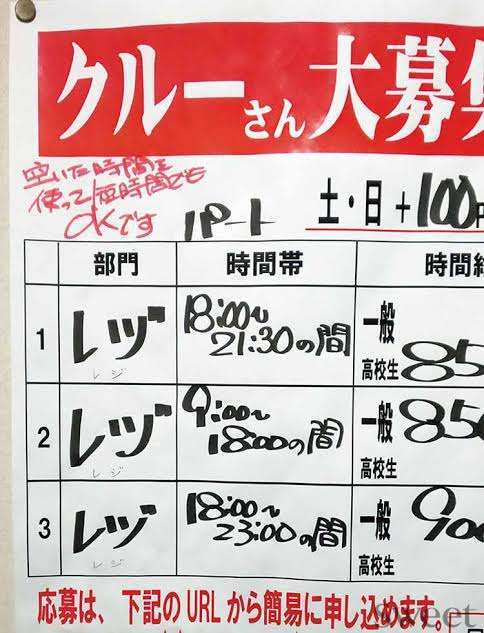 クルーさん大募
空いた時間を
使って短時間でも
OKです
パート
土・日+100円
部門 時間帯 時間
1 レヅ レジ 18:00~21:30の間 一般 高校生 85
2 レヅ レジ 9:00~18:00の間 一般 高校生 850
3 レヅ レジ 18:00~23:00の間 一般 高校生 900
応募は、下記のURLから簡易に申し込めます。